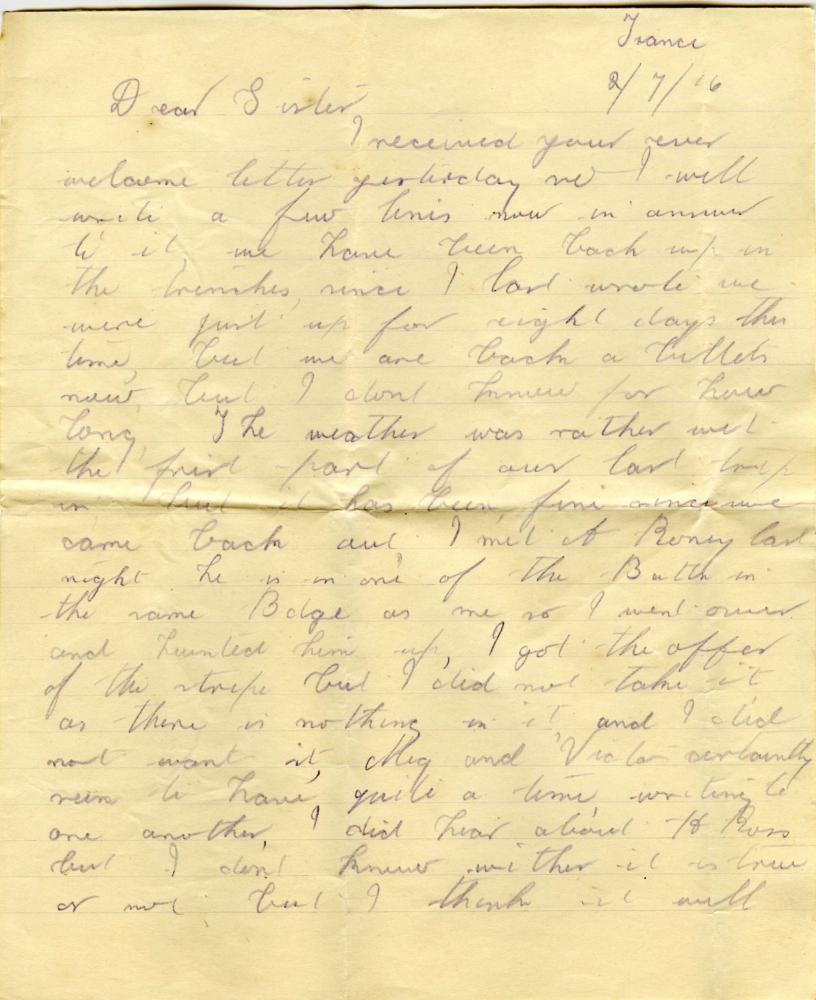 France
2/7/16
Dear Sister,
I received your ever
welcome letter yesterday so I will
write a few lines now in answer
to it, we have been back up in
the trenches, since I last wrote we
were just up for eight days this
time, but we are back a billets
now, but I dont know for how
long, The weather was rather wet
the first part of our last trip
in but it has been fine since we
came back out, I met A Roney last
night he is in one of the Battn in
the same Bdge as me so I went over
and hunted him up, I got the offer
of the stripe but I did not take it,
as there is nothing in it, and I did
not want it, Meg and Victor certaintly
seem to have, quite a time, writing to
one another, I did hear about H Ross
but I dont know wither it is true
or not, but I think it will